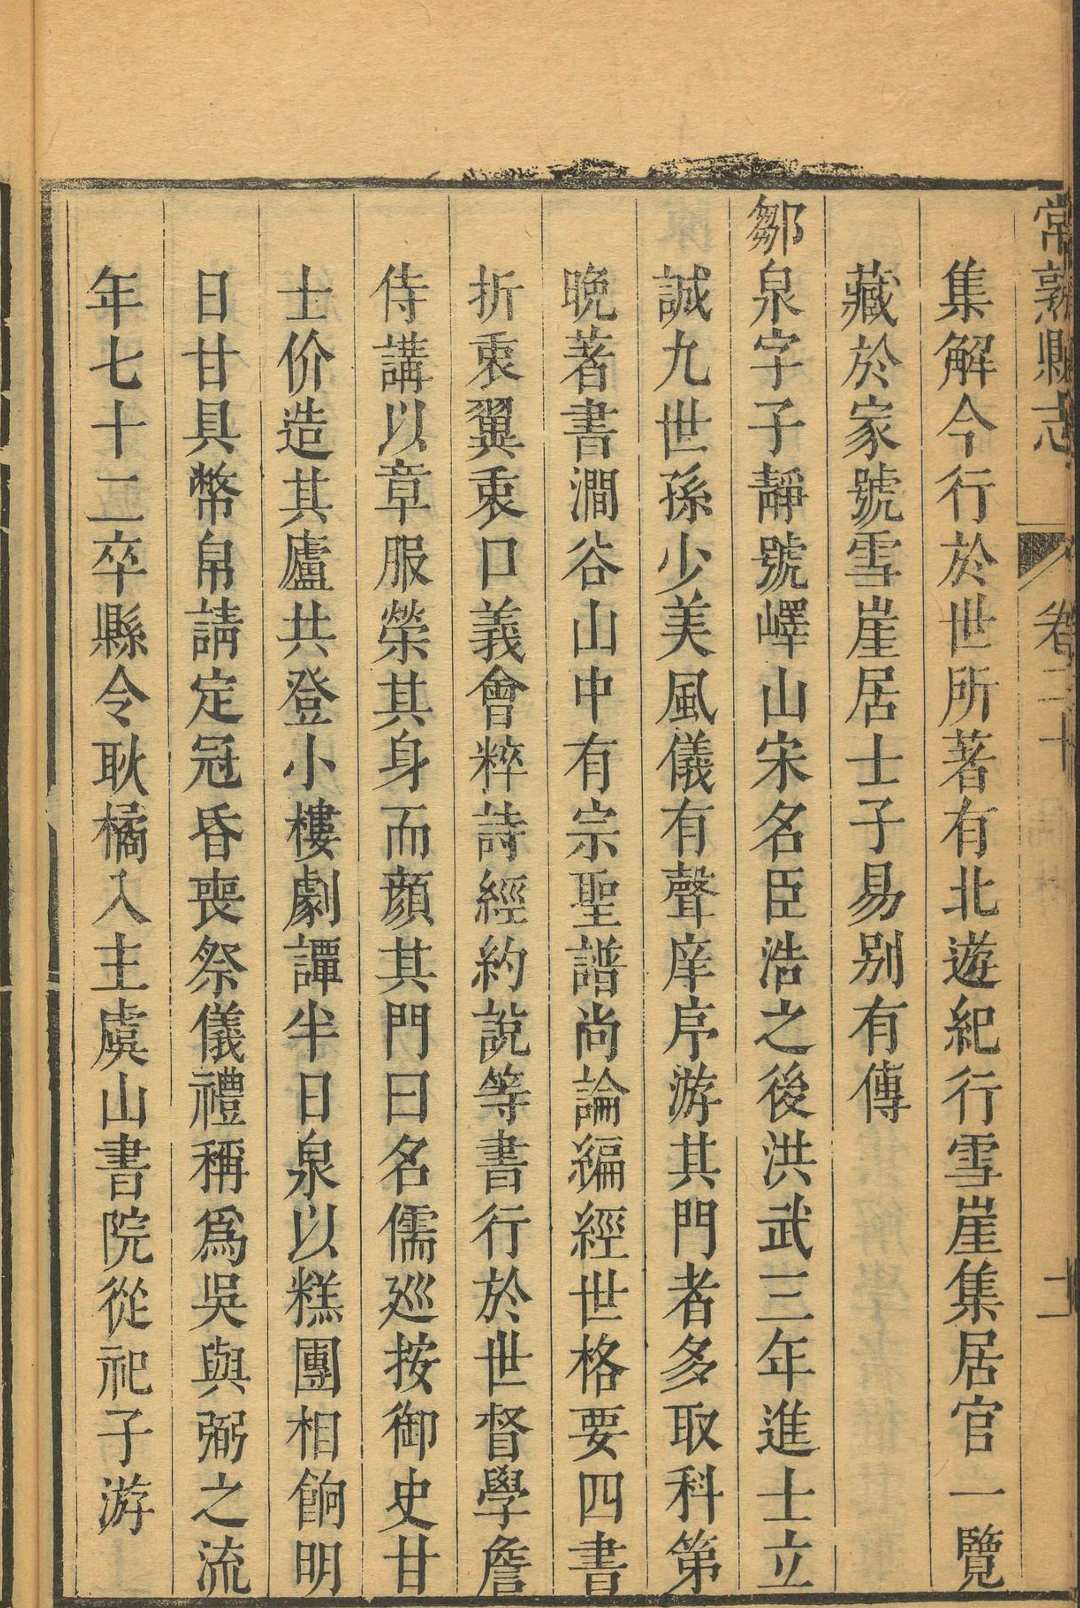 常熟縣志
卷二十
十一
集解今行於世所著有北遊紀行雪崖集居官一覽
藏於家號雪崖居士子易别有傳
鄒泉字子靜號嶧山宋名臣浩之後洪武三年進士立
誠九世孫少美風儀有聲庠序游其門者多取科第
晚著書澗谷山中有宗聖譜尚論編經世格要四書
折衷翼衷口義會粹詩經約說等書行於世督學詹
侍講以章服榮其身而顔其門曰名儒巡按御史甘
士价造其廬共登小樓劇譚半日泉以糕團相餉明
日甘具幣帛請定冠昏喪祭儀禮稱爲吳與弼之流
年七十二卒縣令耿橘入主虞山書院從祀子游